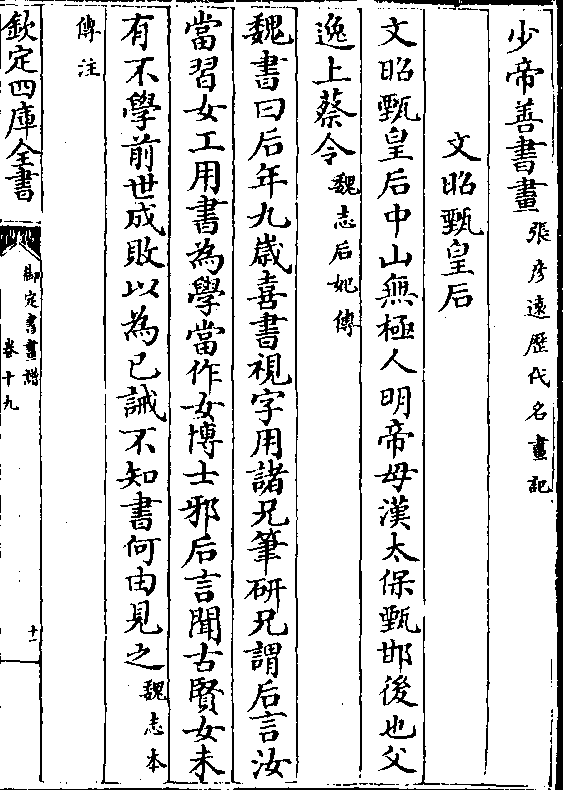 少帝善書畫張彦遠歴代名畫記
文昭甄皇后
文昭甄皇后中山無極人明帝母漢太保甄邯後也父
逸上蔡令魏志后妃傳
魏書曰后年九歳喜書視字用諸兄筆研兄謂后言汝
當習女工用書為學當作女博士邪后言聞古賢女未
有不學前世成敗以為已誡不知書何由見之魏志本
傳注
欽定四庫全書
御定書畫譜
卷十九
十一